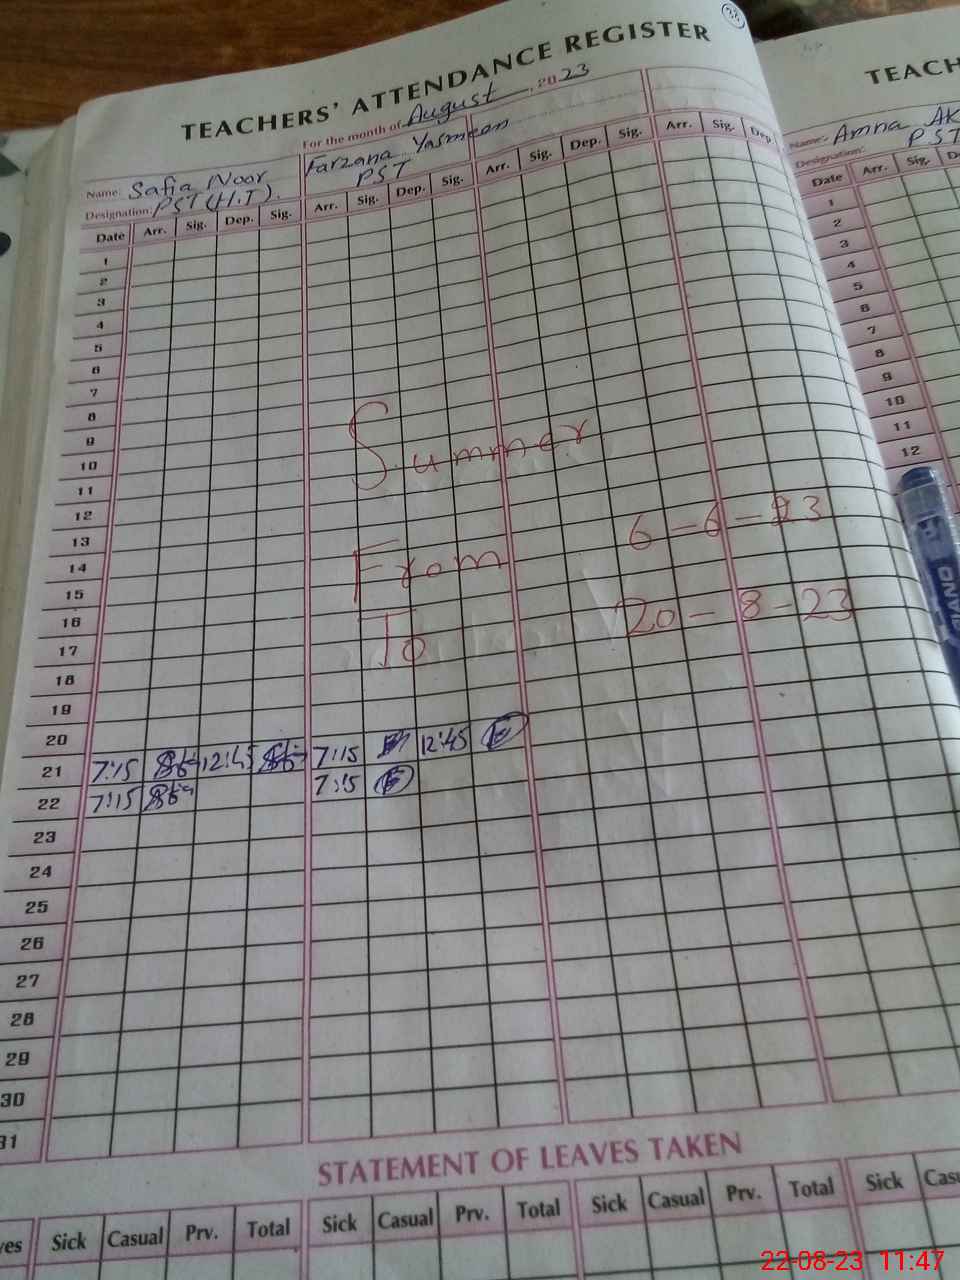 38
TEACHERS' ATTENDANCE REGISTER
For the month of August, 2023
Name: Safia Noor
Farzana Yasmeen
Designation: PST (H.T).
PST
Date Arr. Sig. Dep. Sig. Arr. Sig. Dep. Sig. Arr. Sig. Dep. Sig. Arr. Sig. Dep.
1
2
3
4
5
6
7
8
9
10
11
12
13
14
15
16
17
18
19
20
21 7:15 12:45 7:15 12:45
22 7:15 7:15
23
24
25
26
27
28
29
30
31
Summer
From 6-6-23
To 20-8-23
STATEMENT OF LEAVES TAKEN
Sick Casual Prv. Total Sick Casual Prv. Total Sick Casual Prv. Total Sick
TEACH
Name: Amna AK
Designation: PST
Date Arr. Sig.
1
2
3
4
5
6
7
8
9
10
11
12
PIANO
22-08-23 11:47